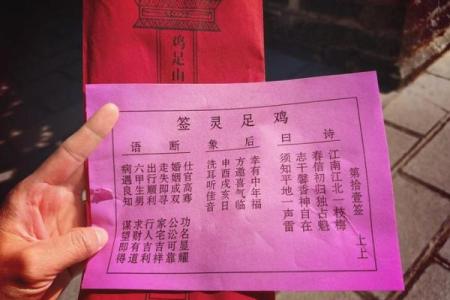 鸡足山
鸡足灵签
第拾壹签 上上
诗曰
江南江北一枝梅
春信初归独占魁
志干馨香神自在
须知平地一声雷
后象
幸有中年福
方邀喜气临
申酉戌亥日
洗耳听佳音
断语
仕官高骞 功名显耀
婚姻成双 公讼可靠
走失即寻 家宅吉祥
出行顺利 行人吉利
六甲生男 求财有道
病遇良知 谋望即得